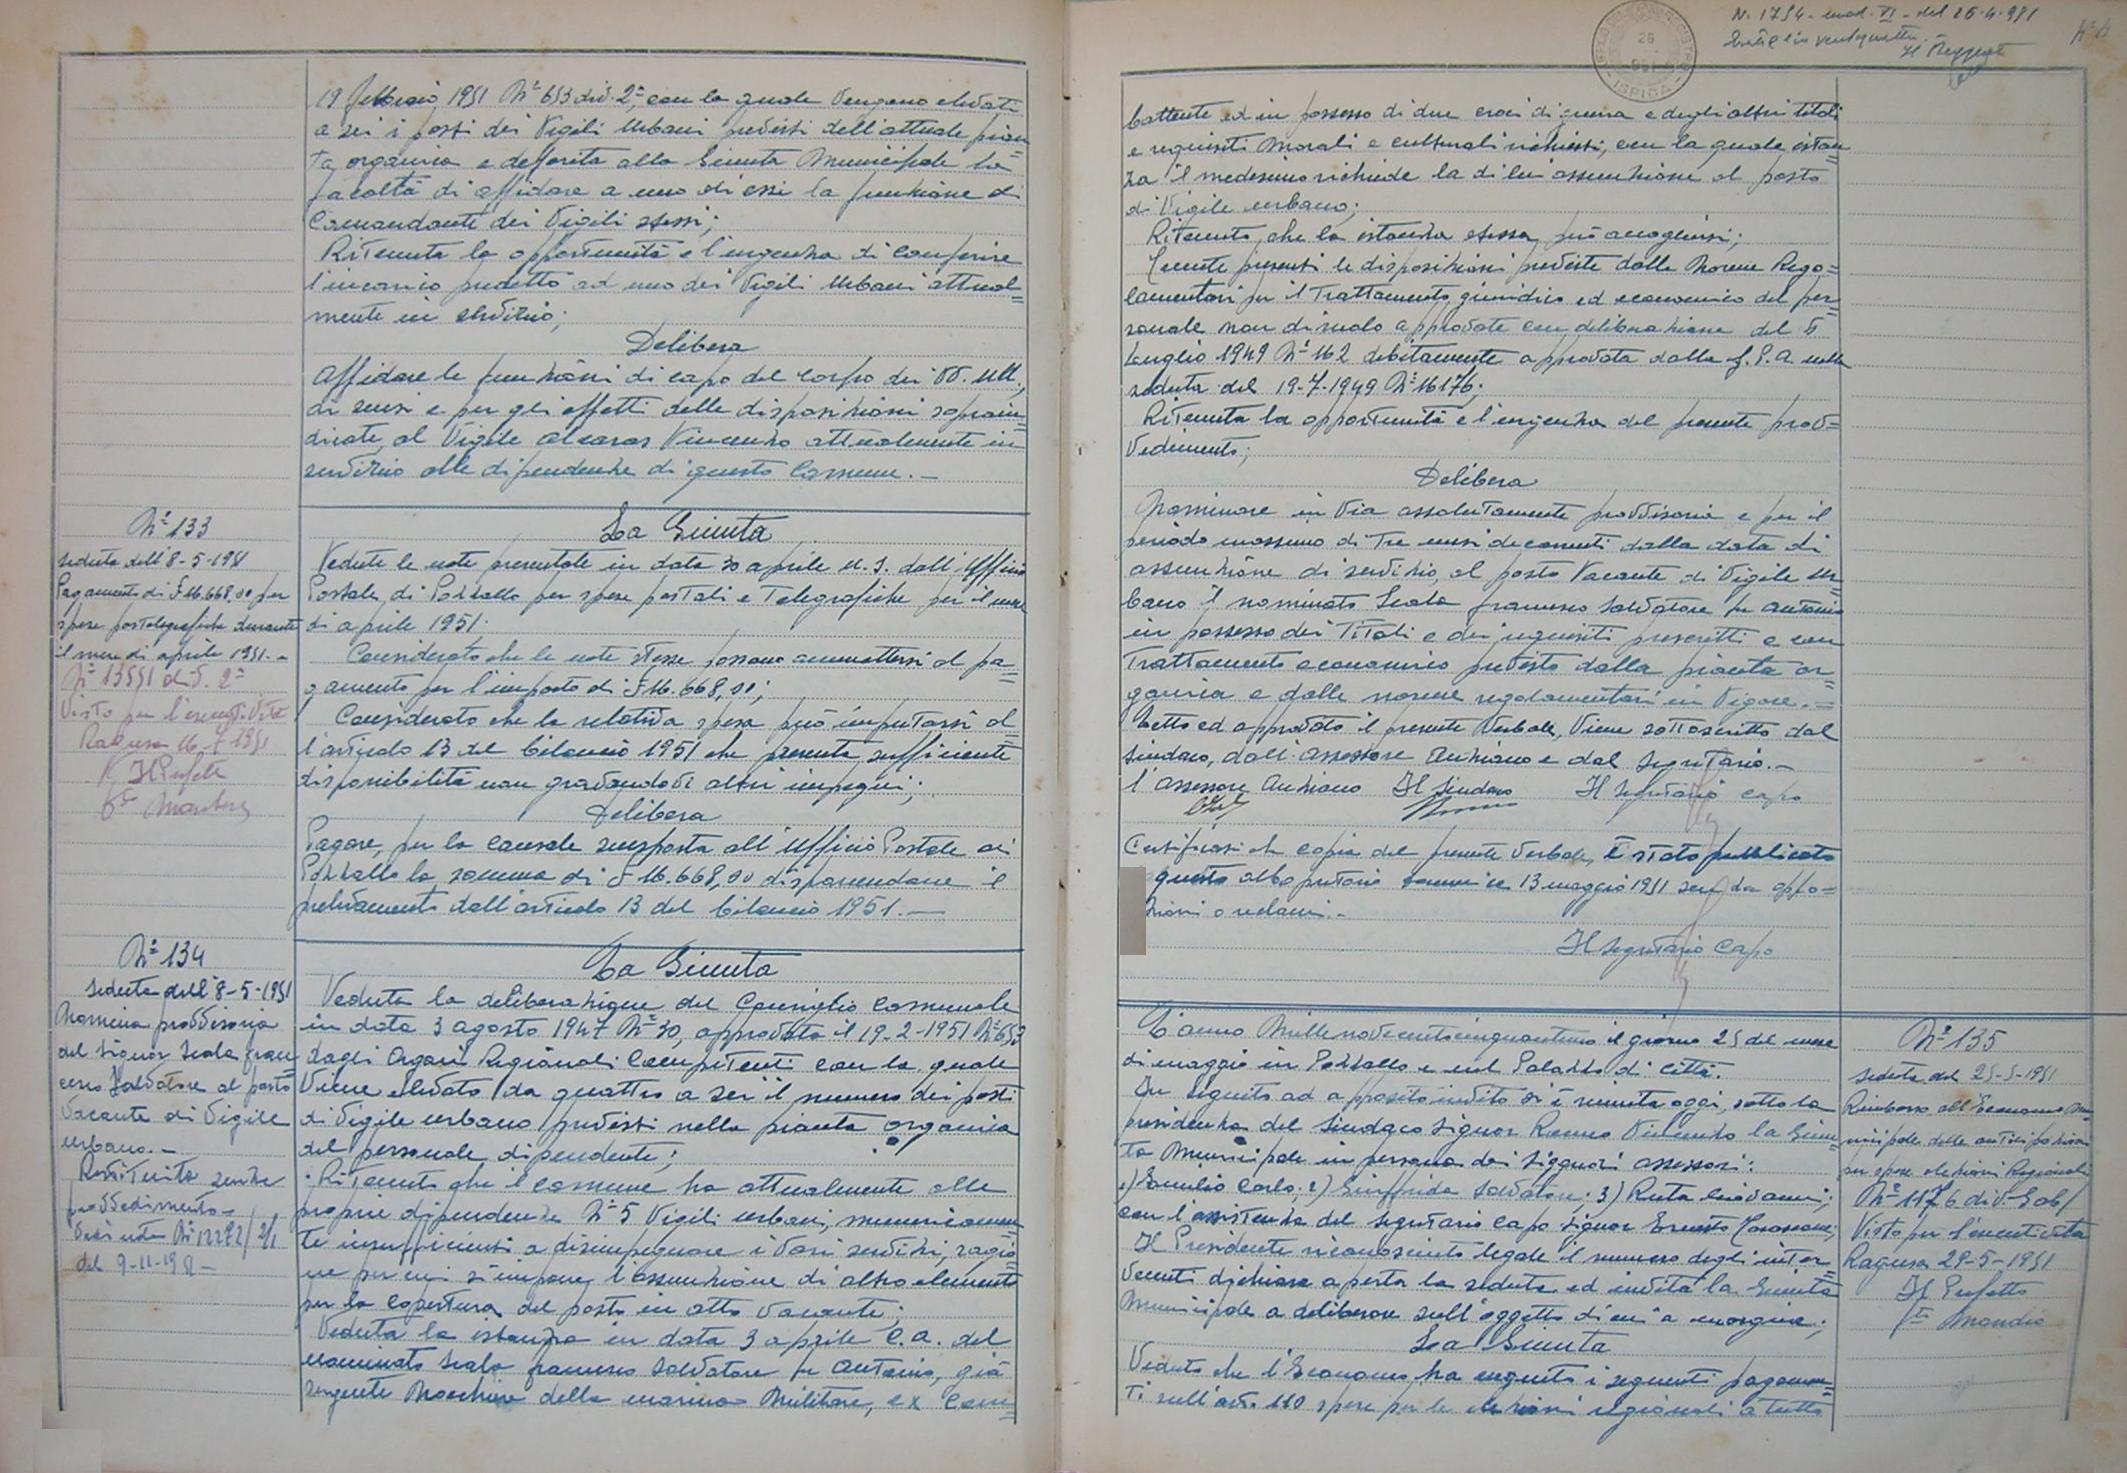 19 febbraio 1951 N° 653 div. 2ª, con la quale vengono elevati
a sei i posti dei Vigili Urbani previsti dell'attuale pian=
ta organica e deferita alla Giunta Municipale la
facoltà di affidare a uno di essi la funzione di
Comandante dei Vigili stessi;
Ritenuta la opportunità e l'urgenza di conferire
l'incarico predetto ad uno dei Vigili Urbani attual=
mente in servizio;
Delibera
Affidare le funzioni di capo del Corpo dei VV. UU.,
ai sensi e per gli effetti delle disposizioni sopra in=
dicate, al Vigile Vincenzo attualmente in
servizio alle dipendenze di questo Comune. —
N° 133
seduta dell'8-5-1951
Pagamento di £ 16.668,00 per
spese postelegrafiche durante
il mese di aprile 1951. -
N° 13591 div. 2ª
Visto per l'esecutività
Ragusa 16-7-1951
Il Prefetto
La Giunta
Vedute le note presentate in data 30 aprile u. s. dall'Ufficio
Postale di Pozzallo per spese postali e telegrafiche per il mese
di aprile 1951.
Considerato che le note stesse possono ammettersi al pa=
gamento per l'importo di £ 16.668,00;
Considerato che la relativa spesa può imputarsi al=
l'articolo 13 del bilancio 1951 che presenta sufficiente
disponibilità non gravandovi altri impegni;
Delibera
Pagare, per la causale suesposta all'Ufficio Postale di
Pozzallo la somma di £ 16.668,00 disponendone il
prelevamento dall'articolo 13 del bilancio 1951. —
N° 134
Seduta dell'8-5-1951
Nomina provvisoria
del Signor Scala Fran=
cesco Salvatore al posto
vacante di Vigile
urbano. -
Restituita senza
provvedimento -
del 9-11-
La Giunta
Veduta la deliberazione del Consiglio Comunale
in data 3 agosto 1947 N° 30, approvata il 19-2-1951 N° 653
dagli Organi Regionali Competenti con la quale
viene elevato da quattro a sei il numero dei posti
di Vigile urbano previsti nella pianta organica
del personale dipendente;
Ritenuto che il comune ha attualmente alle
proprie dipendenze N° 5 Vigili urbani, numericamen=
te insufficienti a disimpegnare i vari servizi, ragio=
ne per cui s'impone l'assunzione di altro elemento
per la copertura del posto in atto vacante;
Veduta la istanza in data 3 aprile c.a. del
nominato Scala Francesco Salvatore fu Antonio, già
sergente della marina Militare, ex com=
N. 1754 - mod. VI - del 26-4-951
ISPICA
battente ed in possesso di due croci di guerra e degli altri titoli
e requisiti morali e culturali richiesti, con la quale istan=
za il medesimo richiede la di lui assunzione al posto
di Vigile urbano;
Ritenuto che la istanza stessa può accogliersi;
Tenute presenti le disposizioni previste dalle Norme Rego=
lamentari per il trattamento giuridico ed economico del per=
sonale non di ruolo approvate con deliberazione del 4
Luglio 1949 N° 162 debitamente approvata dalla G. P. A. nella
seduta del 19-7-1949 N° 16176.
Ritenuta la opportunità e l'urgenza del presente prov=
vedimento;
Delibera
Nominare in via assolutamente provvisoria e per il
periodo massimo di tre mesi decorrenti dalla data di
assunzione di servizio, al posto vacante di Vigile Ur=
bano il nominato Scala Francesco Salvatore fu Antonio
in possesso dei titoli e dei requisiti prescritti e con
trattamento economico previsto dalla pianta or=
ganica e dalle norme regolamentari in vigore. =
Letto ed approvato il presente Verbale, viene sottoscritto dal
Sindaco, dall'Assessore Anziano e dal Segretario. -
L'Assessore Anziano Il Sindaco Il Segretario Capo
Certificasi che copia del presente Verbale, è stato pubblicato
questo albo pretorio domenica 13 maggio 1951 senza oppo=
zioni o reclami. -
Il Segretario Capo
L'anno Millenovecentocinquantuno il giorno 25 del mese
di maggio in Pozzallo e nel Palazzo di Città.
In seguito ad apposito invito si è riunita oggi, sotto la
presidenza del Sindaco Signor Vincenzo la Giun=
ta Municipale in persona dei Signori Assessori:
1) Carlo; 2) Giuffrida Salvatore; 3) Ruta Giovanni;
con l'assistenza del Segretario Capo Signor Ernesto
Il Presidente riconosciuto legale il numero degli inter=
venuti dichiara aperta la seduta ed invita la Giunta
Municipale a deliberare sull'oggetto di cui a margine;
La Giunta
Veduto che l'Economo ha eseguito i seguenti pagamen=
ti sull'art. 110 spese per le elezioni regionali a tutto
N° 135
Seduta del 25-5-1951
Rimborso all'Economo Mu=
nicipale delle anticipazioni
per spese elezioni Regionali
N° 11176 div. Gab/
Visto per l'esecutività
Ragusa 29-5-1951
Il Prefetto